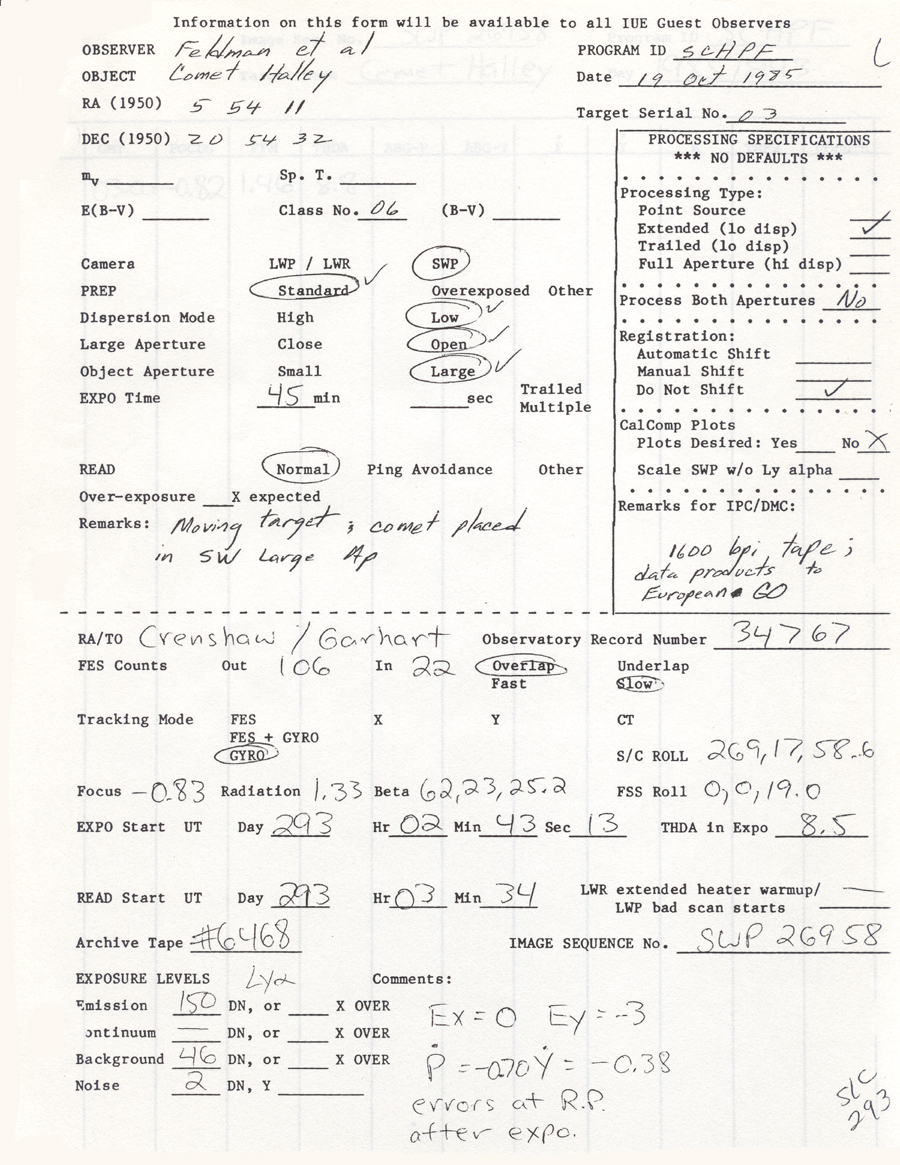 Information on this form will be available to all IUE Guest Observers
OBSERVER Feldman et al PROGRAM ID SCHPF
OBJECT Comet Halley Date 19 Oct 1985
RA (1950) 5 54 11 Target Serial No. 03
DEC (1950) 20 54 32
PROCESSING SPECIFICATIONS
*** NO DEFAULTS ***
mv Sp. T.
E(B-V) Class No. 06 (B-V)
Processing Type:
Point Source
Extended (lo disp) ✓
Trailed (lo disp)
Full Aperture (hi disp)
Process Both Apertures No
Registration:
Automatic Shift
Manual Shift
Do Not Shift ✓
CalComp Plots
Plots Desired: Yes No X
Scale SWP w/o Ly alpha
Remarks for IPC/DMC:
1600 bpi tape;
data products to
European GO
Camera LWP / LWR SWP
PREP Standard ✓ Overexposed Other
Dispersion Mode High Low ✓
Large Aperture Close Open ✓
Object Aperture Small Large ✓
EXPO Time 45 min sec Trailed
Multiple
READ Normal Ping Avoidance Other
Over-exposure X expected
Remarks: Moving target; comet placed
in SW Large Ap
RA/TO Crenshaw / Garhart Observatory Record Number 34767
FES Counts Out 106 In 22 Overlap Underlap
Fast Slow
Tracking Mode FES X Y CT
FES + GYRO
GYRO S/C ROLL 269,17,58.6
Focus -0.83 Radiation 1.33 Beta 62,23,25.2 FSS Roll 0,0,19.0
EXPO Start UT Day 293 Hr 02 Min 43 Sec 13 THDA in Expo 8.5
READ Start UT Day 293 Hr 03 Min 34 LWR extended heater warmup/ —
LWP bad scan starts
Archive Tape #6468 IMAGE SEQUENCE No. SWP 26958
EXPOSURE LEVELS Lyα Comments:
Emission 150 DN, or X OVER
ontinuum — DN, or X OVER
Background 46 DN, or X OVER
Noise 2 DN, Y
Ex = 0 Ey = -3
Ṗ = -0.70 Ẏ = -0.38
errors at R.P.
after expo.
S/C
293